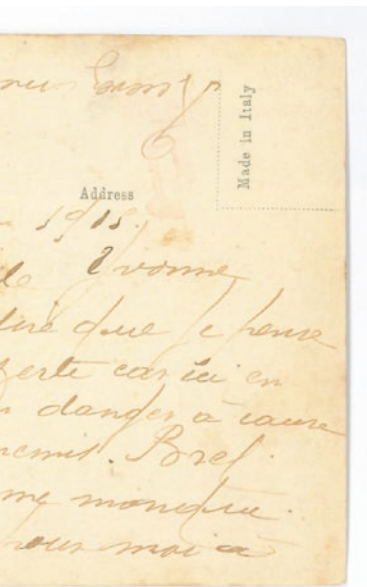 Made in Italy
Address
1915.
Yvonne
dire que je pense
perte car ici en
danger à cause
ennemis. Bref.
me manque.
pour moi à